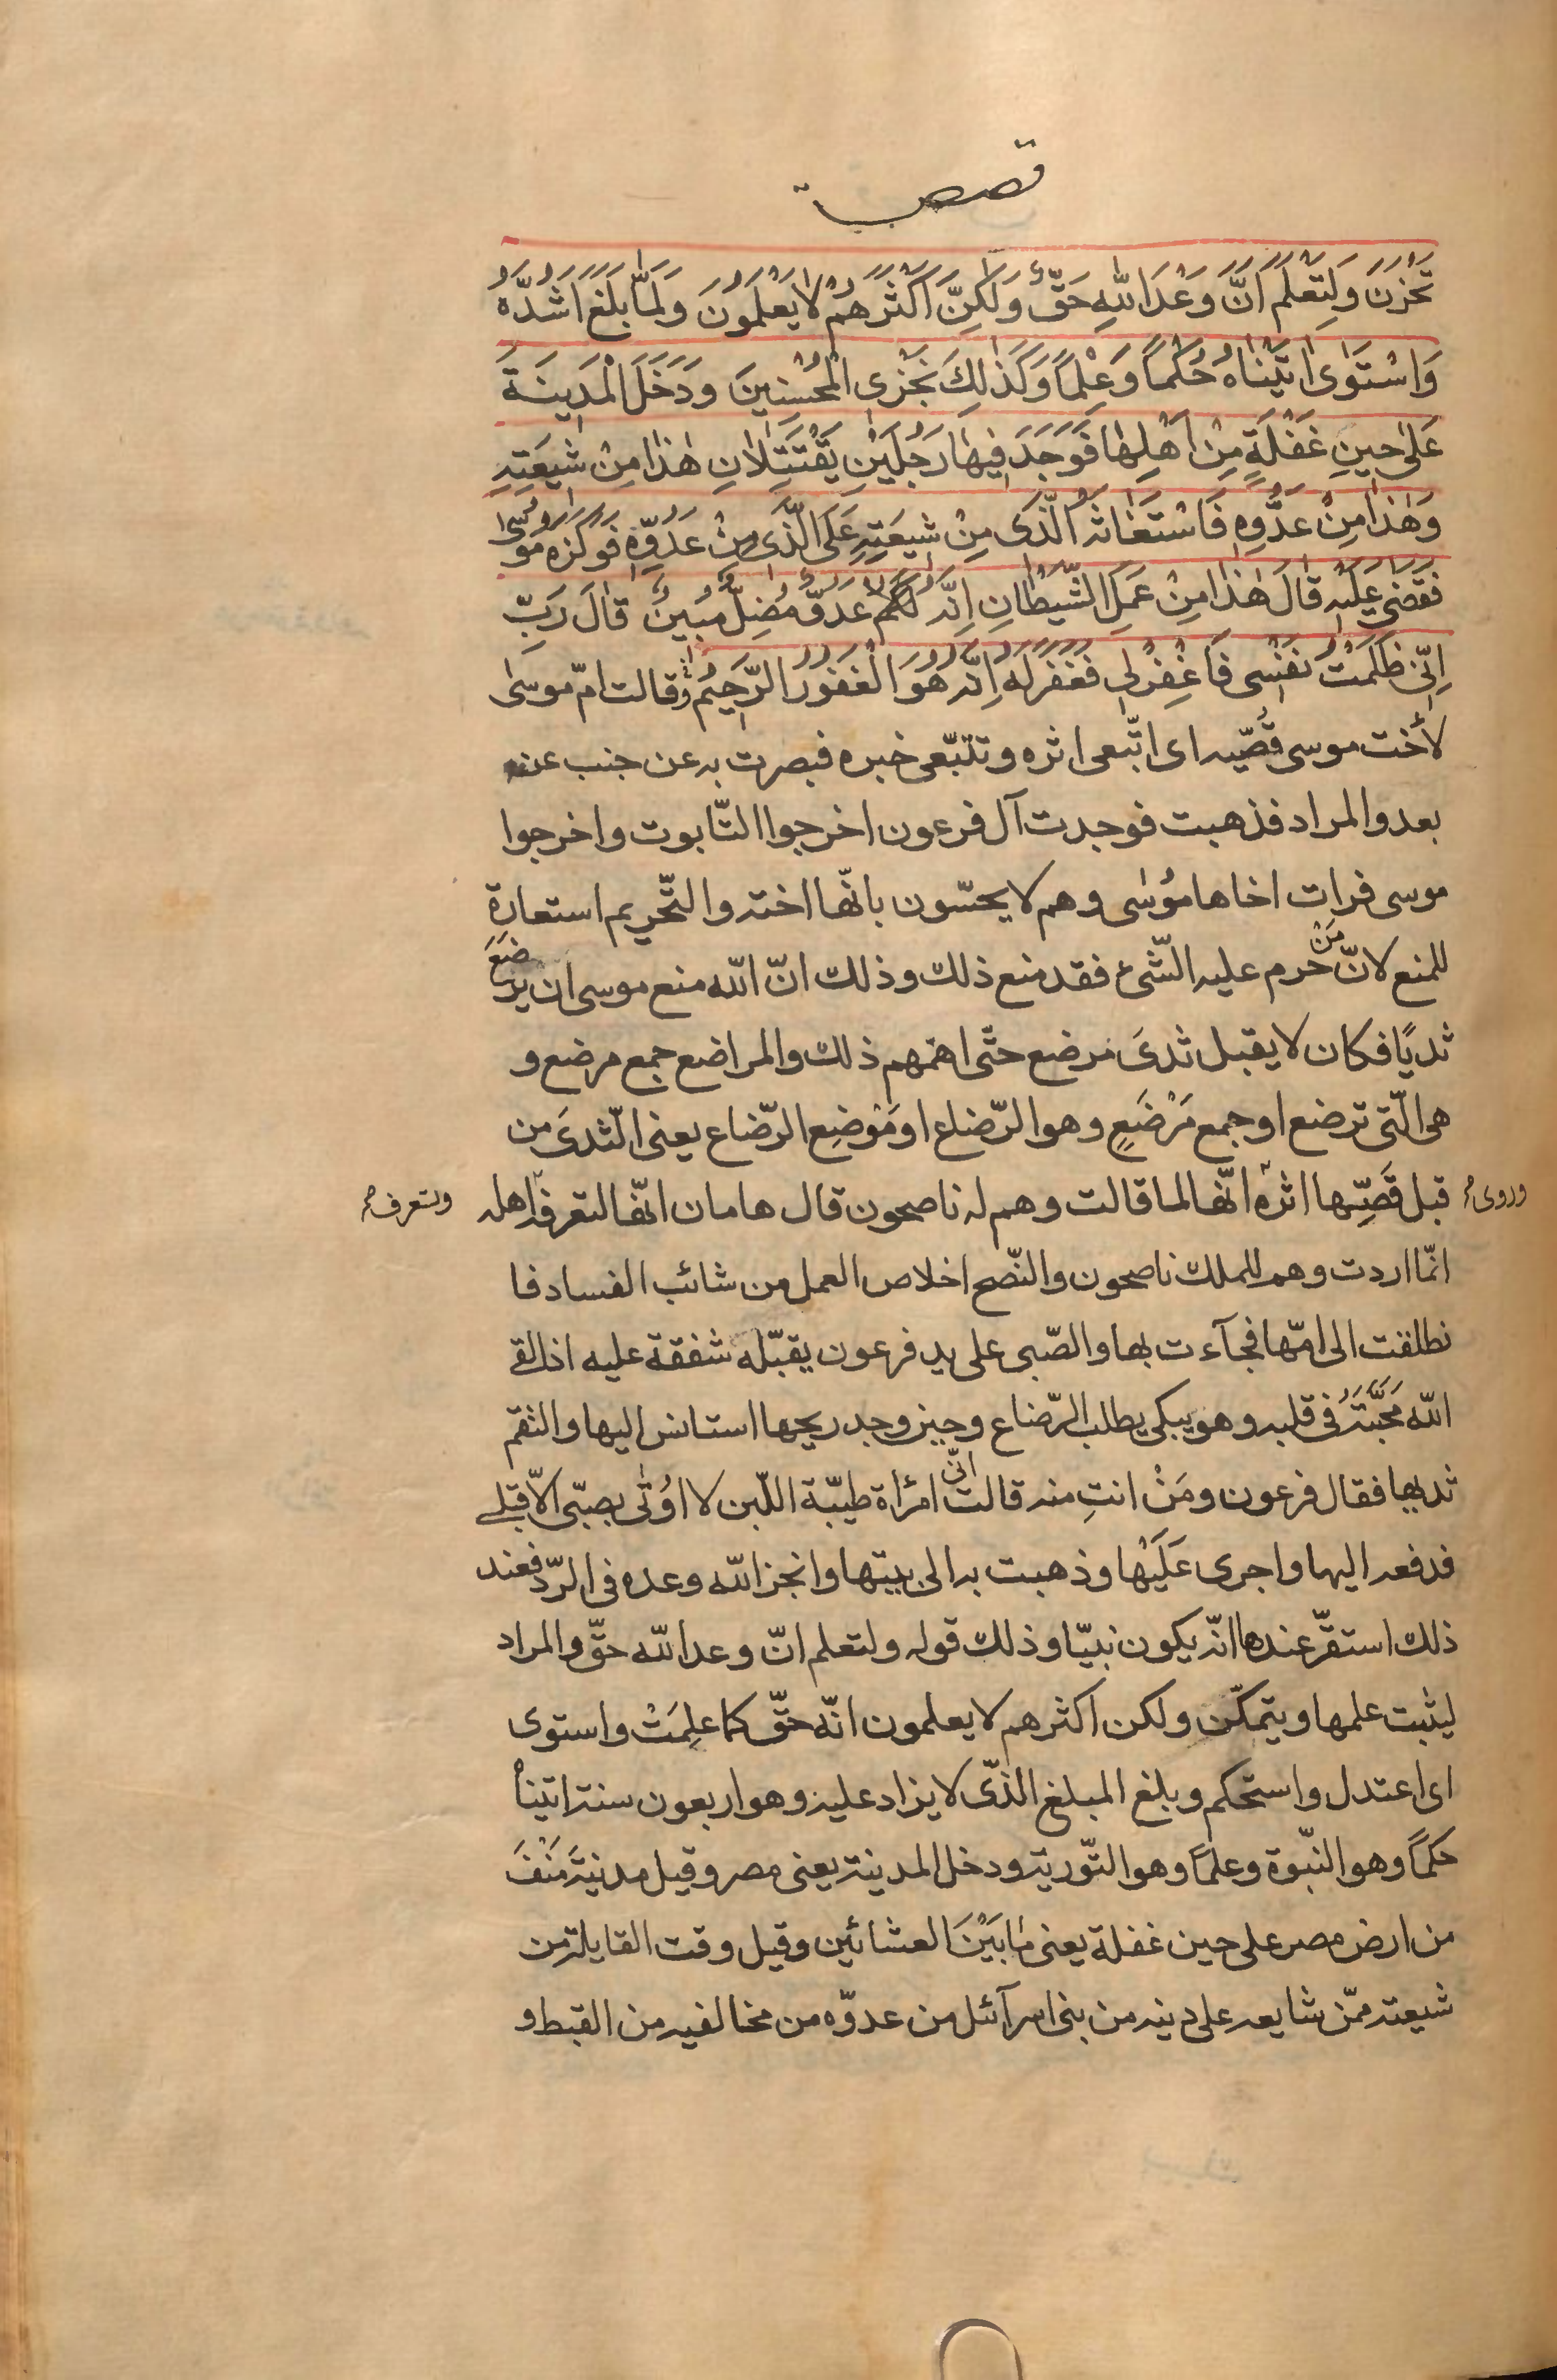 قصص
تَحْزَنَ وَلِتَعْلَمَ اَنَّ وَعْدَ اللّٰهِ حَقٌّ وَلٰكِنَّ اَكْثَرَهُمْ لَا يَعْلَمُونَ وَلَمَّا بَلَغَ اَشُدَّهُ
وَاسْتَوٰى اٰتَيْنَاهُ حُكْمًا وَعِلْمًا وَكَذٰلِكَ نَجْزِى الْمُحْسِنِينَ وَدَخَلَ الْمَدِينَةَ
عَلٰى حِينِ غَفْلَةٍ مِنْ اَهْلِهٰا فَوَجَدَ فِيهٰا رَجُلَيْنِ يَقْتَتِلٰانِ هٰذٰا مِنْ شِيعَتِهِ
وَهٰذٰا مِنْ عَدُوِّهِ فَاسْتَغٰاثَهُ الَّذِى مِنْ شِيعَتِهِ عَلَى الَّذِى مِنْ عَدُوِّهِ فَوَكَزَهُ مُوسٰى
فَقَضٰى عَلَيْهِ قٰالَ هٰذٰا مِنْ عَمَلِ الشَّيْطٰانِ اِنَّهُ لَكُمْ عَدُوٌّ مُضِلٌّ مُبِينٌ قٰالَ رَبِّ
اِنِّى ظَلَمْتُ نَفْسِى فَاغْفِرْ لِى فَغَفَرَ لَهُ اِنَّهُ هُوَ الْغَفُورُ الرَّحِيمُ وقالت امّ موسىٰ
لأخت موسى قُصّيه اى اتّبعى اثره وتتبّعى خبره فبصرت به عن جنب عن
بعد والمراد فذهبت فوجدت آل فرعون اخرجوا التّابوت واخرجوا
موسى فرات اخاها مُوسٰى وهم لا يحسّون بانّها اخته والتّحريم استعارة
للمنع لانّ مَنْ حرم عليه الشّئ فقد منع ذلك وذلك انّ اللّه منع موسى ان يرضَعَ
ثديًا فكان لا يقبل ثدىَ مرضع حتّى اهمّهم ذلك والمراضع جمع مرضع و
هى الّتى ترضع او جمع مَرْضَعٍ وهو الرّضاع او مَوْضِع الرّضاع يعنى الثّدىَ من
قبل قَصِّها اثره وروى انّها لما قالت وهم له ناصحون قال هامان انّها لتعرفه وتعرف اهله
انّما اردت وهم للملك ناصحون والنّصح اخلاص العمل من شائب الفساد فا
نطلقت الى امّها فجآءت بها والصّبى على يد فرعون يقبّله شفقة عليه اذ القى
اللّه مَحَبَّتَهُ فى قلبه وهو يبكى يطلب الرّضاع وحين وجد ريحها استانس اليها والتقم
ثديها فقال فرعون ومَنْ انتِ منه قالت انّى امرٔاة طيّبة اللّبن لا اُوتٰى بصبّى الّا قبلنى
فدفعه اليها واجرى عَلَيْها وذهبت به الى بيتها وانجز اللّه وعده فى الرّد فعند
ذلك استقرّ عندها انّه يكون نبيّا وذلك قوله ولتعلم انّ وعد اللّه حقّ والمراد
ليثبت علمها ويتمكّن ولكن اكثرهم لا يعلمون انّه حقّ كما علِمَتْ واستوى
اى اعتدل واستحكم وبلغ المبلغ الذّى لا يزاد عليه وهو اربعون سنة اتيناهُ
حكمًا وهو النّبوة وعلمًا وهو التّورية ودخل المدينة يعنى مصر وقيل مدنيةَ مَنْفَ
من ارض مصر على حين غفلة يعنى مٰا بَيْنَ العشائين وقيل وقت القايلة من
شيعته ممّن شايعه على دينه من بنى اسرآئل من عدوّه من مخالفيه من القبط و